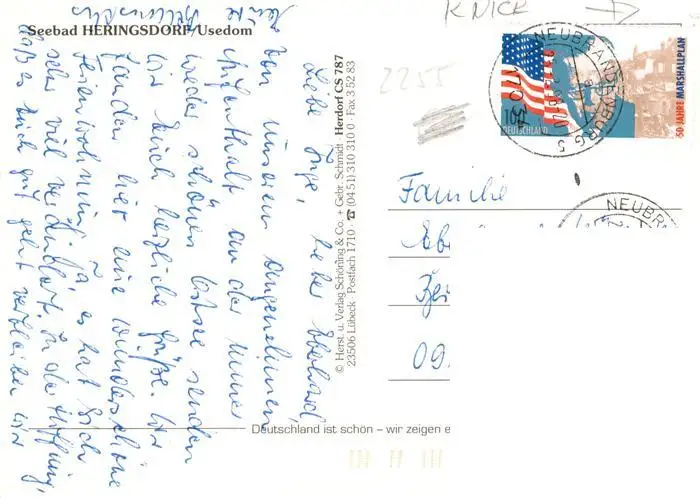 KNICK
Seebad HERINGSDORF/Usedom
2255
NEUBRANDENBURG 3
1705
100
DEUTSCHLAND
50 JAHRE MARSHALLPLAN
NEUBR
Liebe Inge, lieber Eberhard,
von unserem angenehmen
Aufenthalt an der immer
wieder schönen Ostsee senden
wir Euch herzliche Grüße. Wir
fanden hier eine wunderschöne
Ferienwohnung, es hat sich
sehr viel verändert. In der Hoffnung,
daß es Euch gut geht verbleiben wir
© Herst. u. Verlag Schöning & Co. + Gebr. Schmidt · Herdorf CS 787
23506 Lübeck · Postfach 1710 · ☎ (04 51) 310 310 0 · Fax 3 52 83
Familie
Eb
09
Deutschland ist schön – wir zeigen e